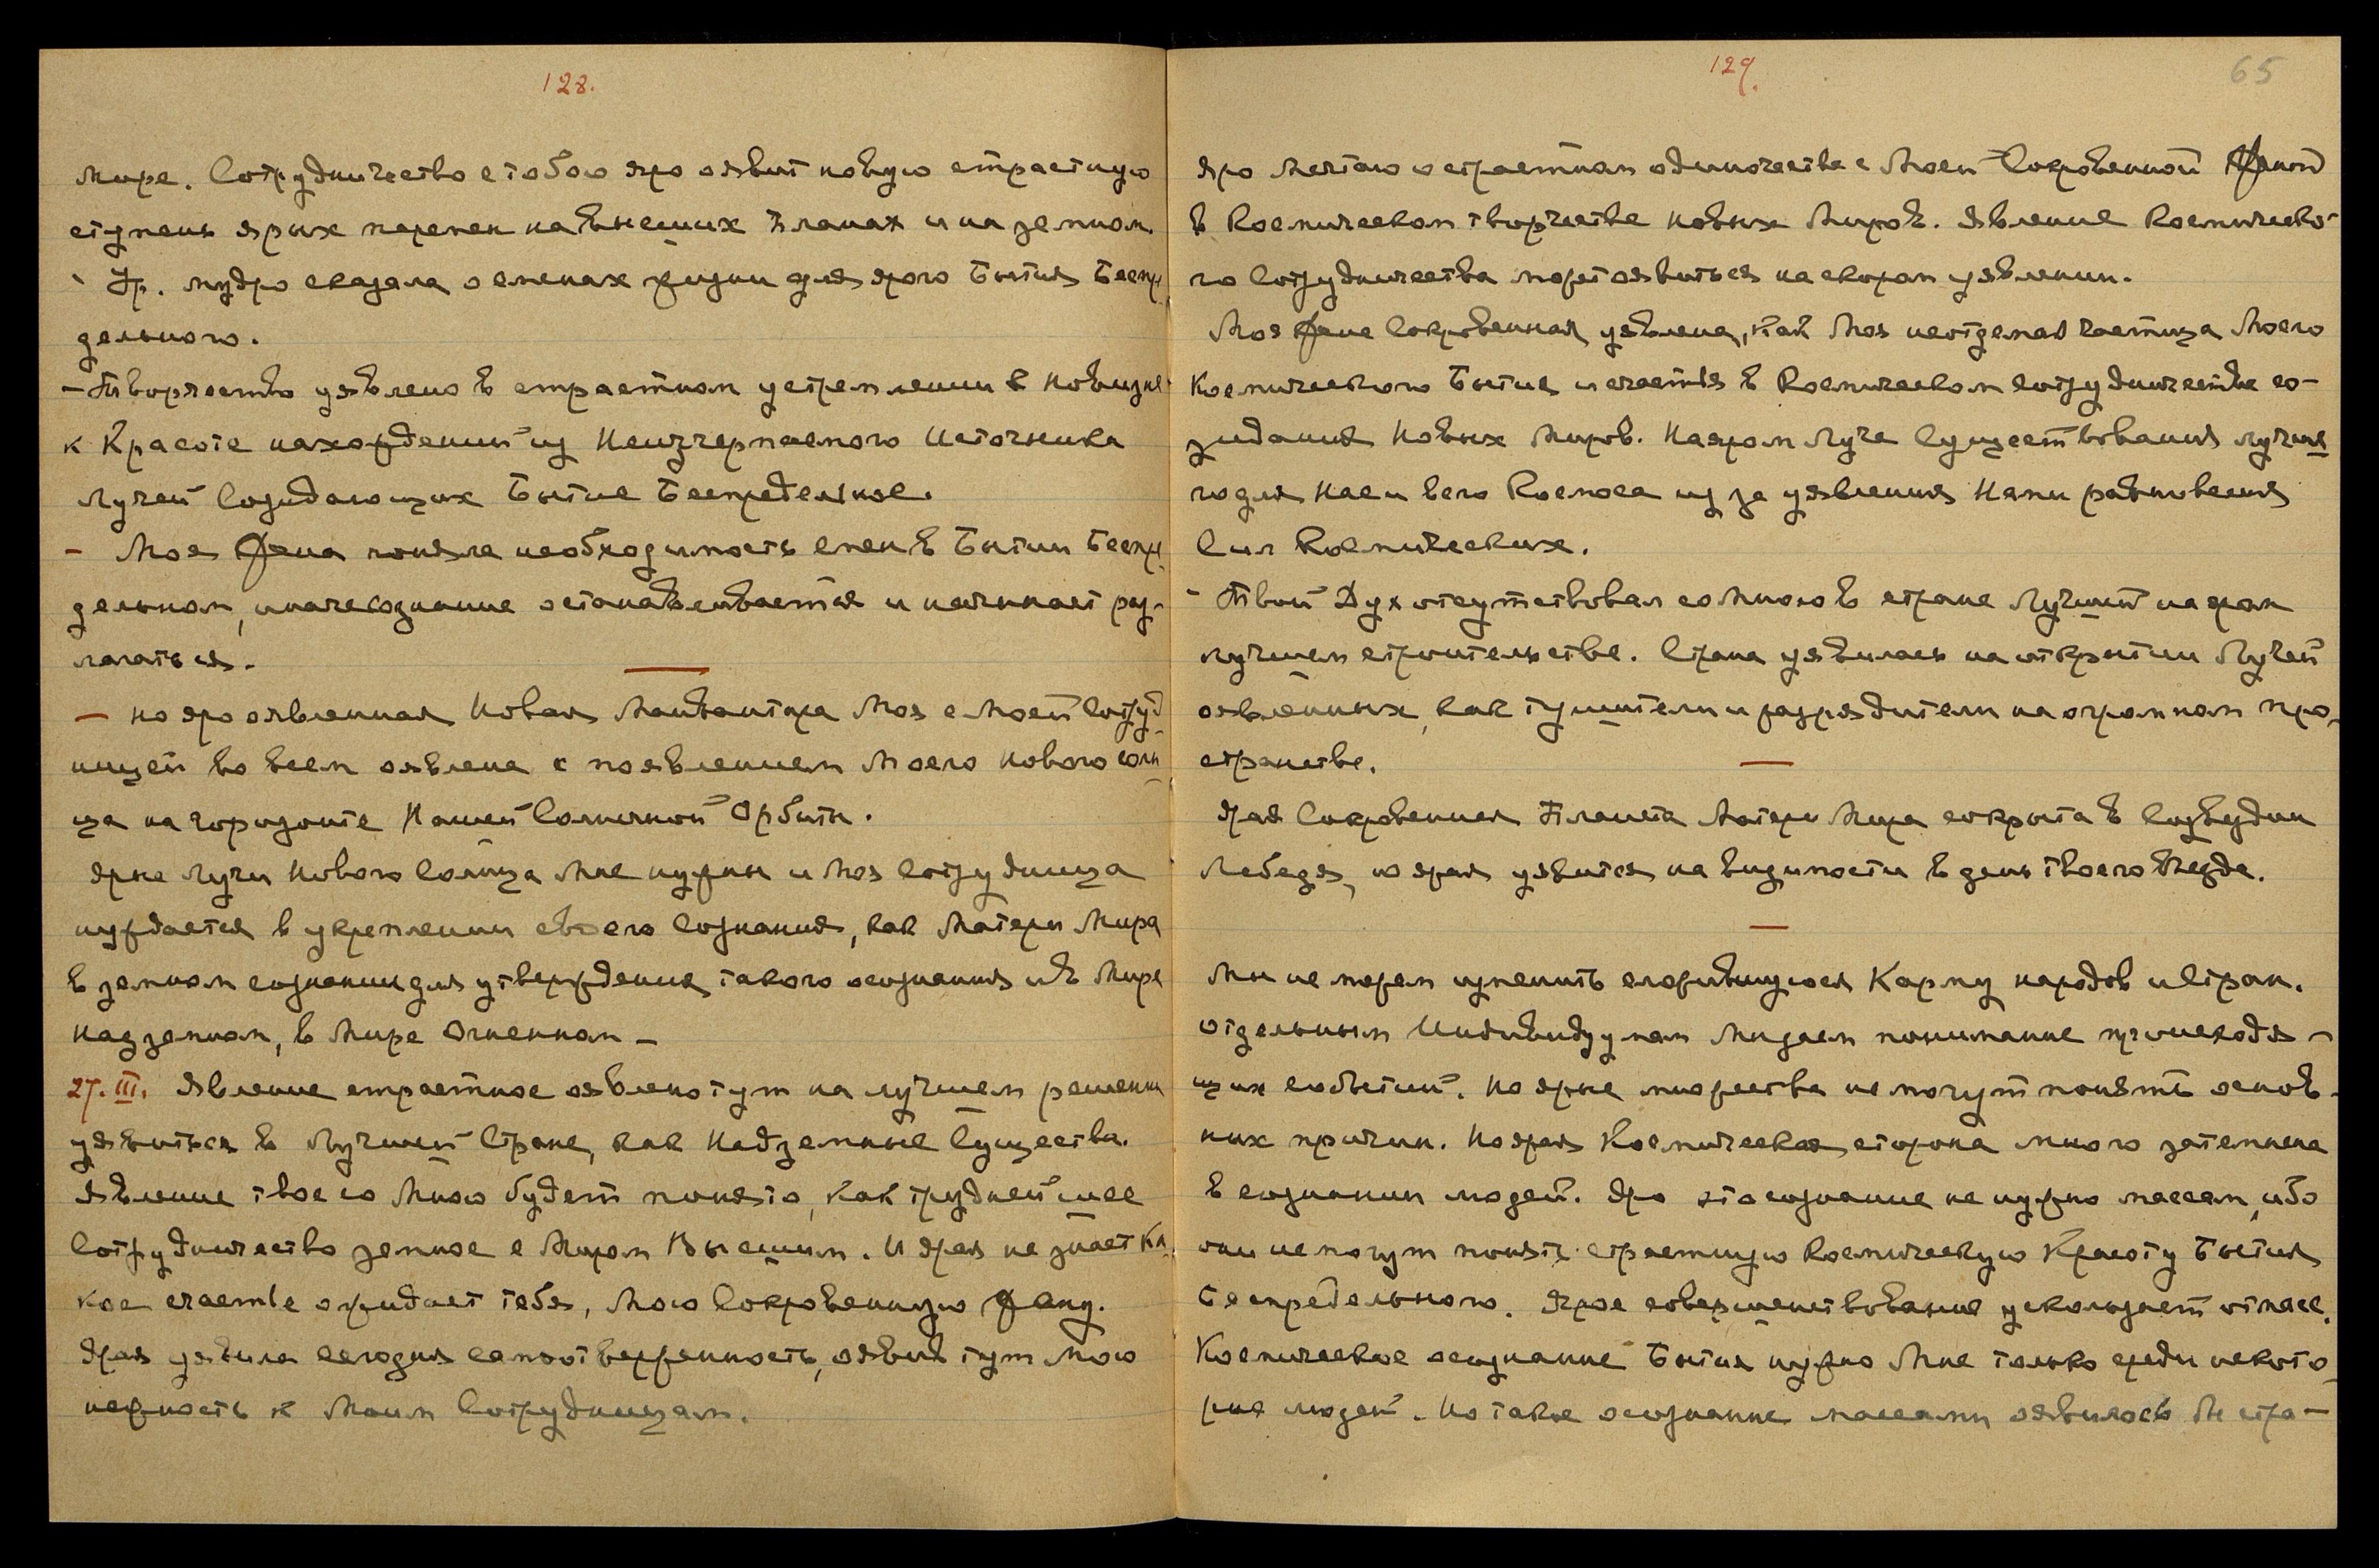 128.
мире. Сотрудничество с тобою яро оявит новую страстную
ступень ярых перемен на Высших планах и на земном.
- Ур. мудро сказала о сменах жизни для ярого Бытия Беспре-
дельного.
- Творчество уявлено в страстном устремлении к новизне
к Красоте нахождений из Неизчерпаемого Источника
Лучей Созидающих Бытие Беспредельное.
- Моя Фена поняла необходимость смен в Бытии Беспре-
дельном, иначе сознание останавливается и начинает раз-
лагаться.
- Но яро оявленная Новая Манвантара Моя с Моей Сотруд-
ницей во всем оявлена с появлением Моего нового солн-
ца на горизонте Нашей Солнечной Орбиты.
Ярые Лучи Нового Солнца Мне нужны и Моя Сотрудница
нуждается в укреплении своего Сознания, как Матери Мира
в земном сознании для утверждения такого осознания и в Мире
надземном, в Мире Огненном -
27. III. Явление страстное оявлено тут на лучшем решении
уявиться в Лучшей Стране, как Надземные Существа.
Явление твое со Мною будет понято, как труднейшее
Сотрудничество земное с Миром Высшим. И ярая не знает ка-
кое счастье ожидает тебя, Мою Сокровенную Фену.
Ярая уявила сегодня самоотверженность, оявив тут Мою
нежность к Моим Сотрудницам.
129.
65
яро мечтаю о страстном одиночестве с Моей Сокровенной Феной
в Космическом творчестве новых Миров. Явление Космическо-
го Сотрудничества может оявиться на скором уявлении.
Моя Фена Сокровенная уявлена, как Моя неотделимая частица Моего
Космического Бытия и счастья в Космическом сотрудничестве со-
зидания Новых Миров. На яром Луче Существования лучшего
для Нас и всего Космоса из за уявления Нами равновесия
Сил Космических.
- Твой Дух отсутствовал со Мною в стране Лучшей на яром
лучшем строительстве. Страна уявилась на открытии Лучей
оявленных, как тушители и разрядители на огромном про-
странстве.
Ярая Сокровенная Планета Матери Мира сокрыта в Созвездии
Лебедя, но ярая уявится на видимости в день твоего въезда.
Мы не можем изменить сложившуюся Карму народов и Стран.
Отдельным Индивидуумам Мы даем понимание происходя-
щих событий. Но ярые множества не могут понять основ-
ных причин. Но ярая Космическая сторона много затемнена
в сознании людей. Яро это сознание не нужно массам, ибо
они не могут понять страстную Космическую Красоту Бытия
Беспредельного. Ярое совершенствование ускользает от масс.
Космическое осознание Бытия нужно Мне только среди некото-
рых людей. Но такое осознание массами оявилось бы стра-